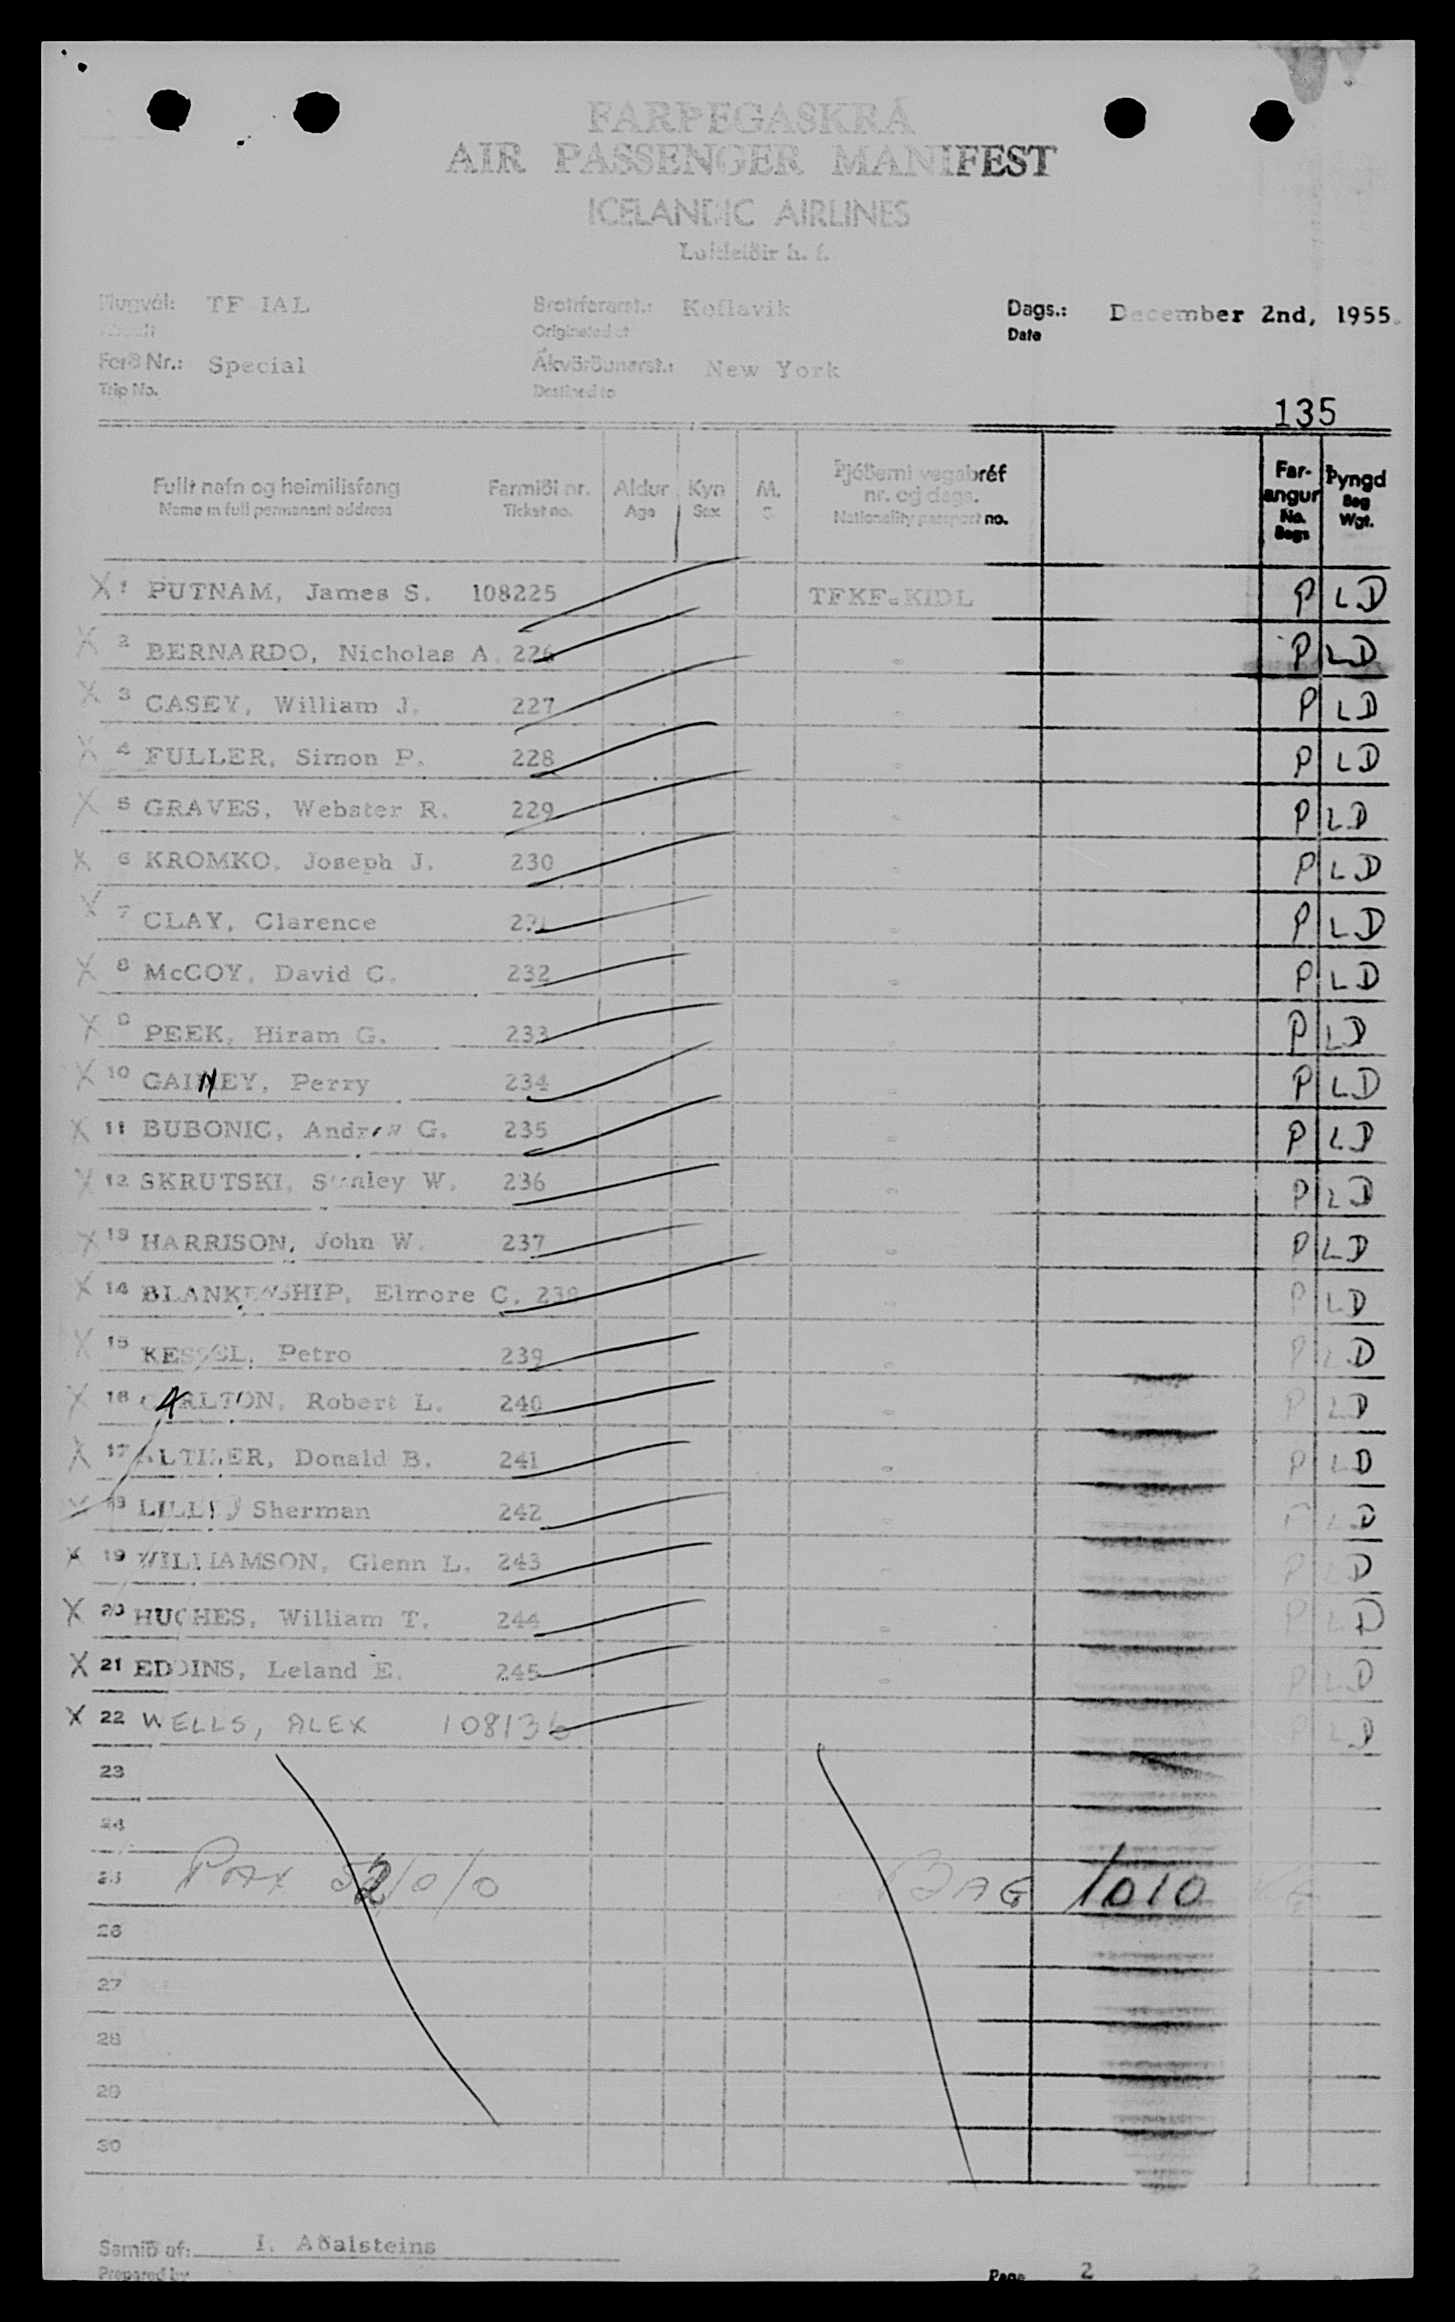 FARÞEGASKRÁ
AIR PASSENGER MANIFEST
ICELANDIC AIRLINES
Loftleiðir h. f.
Flugvél: TF IAL Brottfararst.: Keflavik Dags.: December 2nd, 1955.
Aircraft Originated at Date
Ferð Nr.: Special Ákvörðunarst.: New York
Trip No. Destined to
135
Fullt nafn og heimilisfang Farmiði nr. Aldur Kyn M. Þjóðerni vegabréf nr. og dags. Far-angur Þyngd
Name in full permanent address Ticket no. Age Sex S. Nationality passport no. No. Bags Bag Wgt.
X 1 PUTNAM, James S. 108225 TFKF-KIDL P LD
X 2 BERNARDO, Nicholas A. 226 - P LD
X 3 CASEY, William J. 227 - P LD
X 4 FULLER, Simon P. 228 - P LD
X 5 GRAVES, Webster R. 229 - P LD
X 6 KROMKO, Joseph J. 230 - P LD
X 7 CLAY, Clarence 231 - P LD
X 8 McCOY, David C. 232 - P LD
X 9 PEEK, Hiram G. 233 - P LD
X 10 GAINEY, Perry 234 - P LD
X 11 BUBONIC, Andrew G. 235 - P LD
X 12 SKRUTSKI, Stanley W. 236 - P LD
X 13 HARRISON, John W. 237 - P LD
X 14 BLANKENSHIP, Elmore C. 238 P LD
X 15 KESSEL, Petro 239 - P LD
X 16 CARLTON, Robert L. 240 - P LD
X 17 Donald B. 241 - P LD
X 18 Sherman 242 - P LD
X 19 WILLIAMSON, Glenn L. 243 - P LD
X 20 HUGHES, William T. 244 - P LD
X 21 EDDINS, Leland E. 245 - P LD
X 22 WELLS, ALEX 108136 P LD
23
24
25 Pax 52/0/0 BAG 1010 KG
26
27
28
29
30
Samið af: I. Aðalsteins
Prepared by Page 2 2